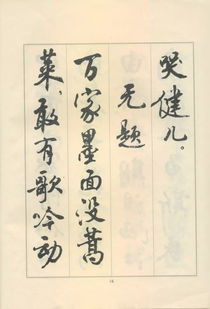 哭健儿。
无题
百家墨面没蒿
莱，敢有歌吟动